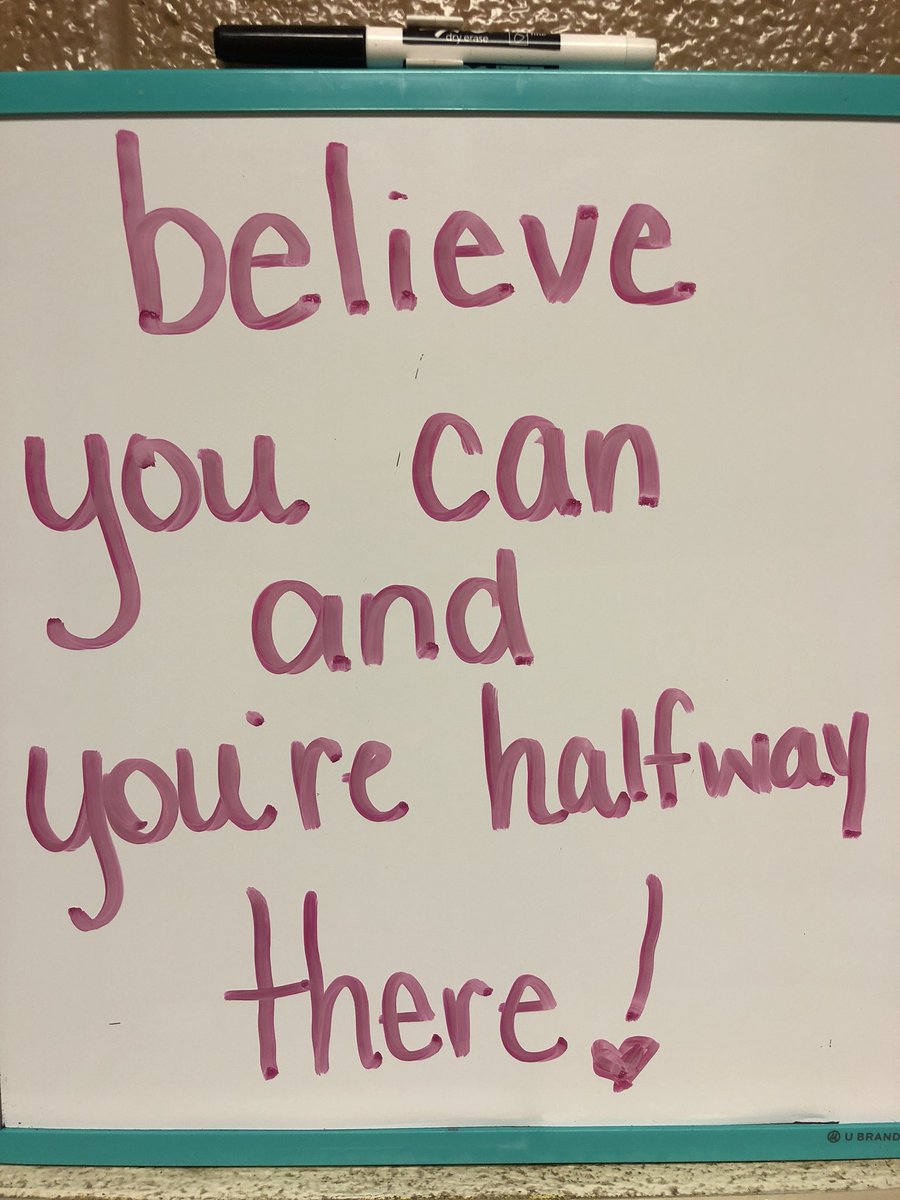 dry erase
believe
you can
and
you're halfway
there!
U BRAND